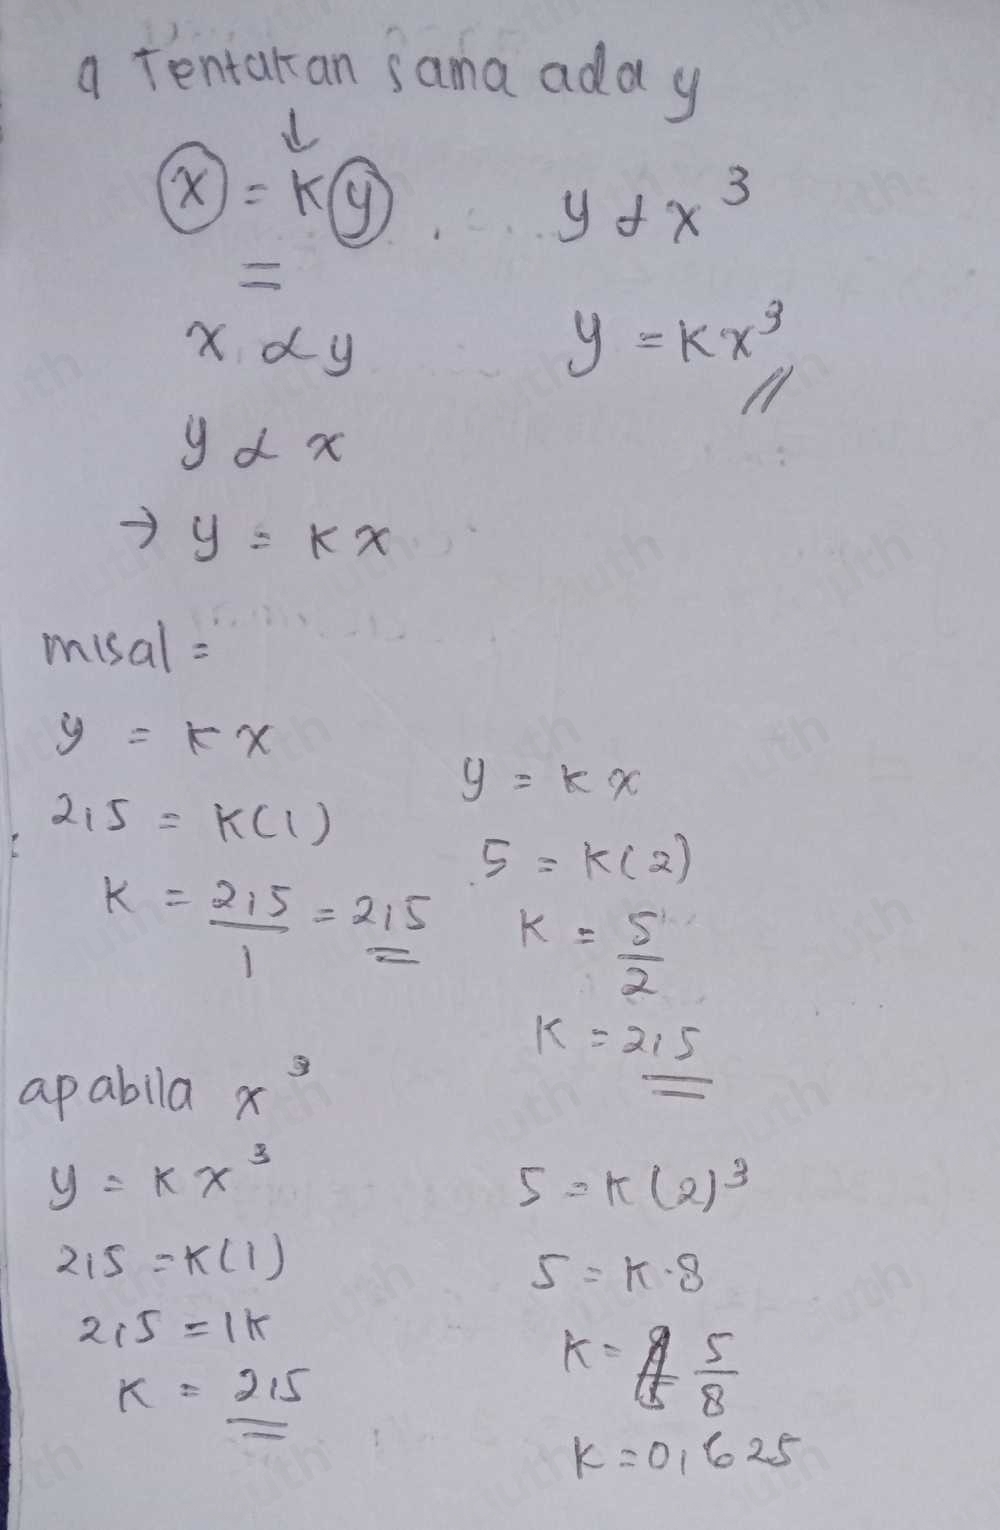 a Tentukan sama ada y
↓
x = k y
y α x³
=
x α y
y = kx³ //
y α x
→ y = kx
misal =
y = kx
2,5 = k(1)
k = 2,5/1 = 2,5
y = kx
5 = k(2)
k = 5/2
k = 2,5
apabila x³
y = kx³
2,5 = k(1)
2,5 = 1k
k = 2,5
5 = k(2)³
5 = k·8
k = 5/8
k = 0,625